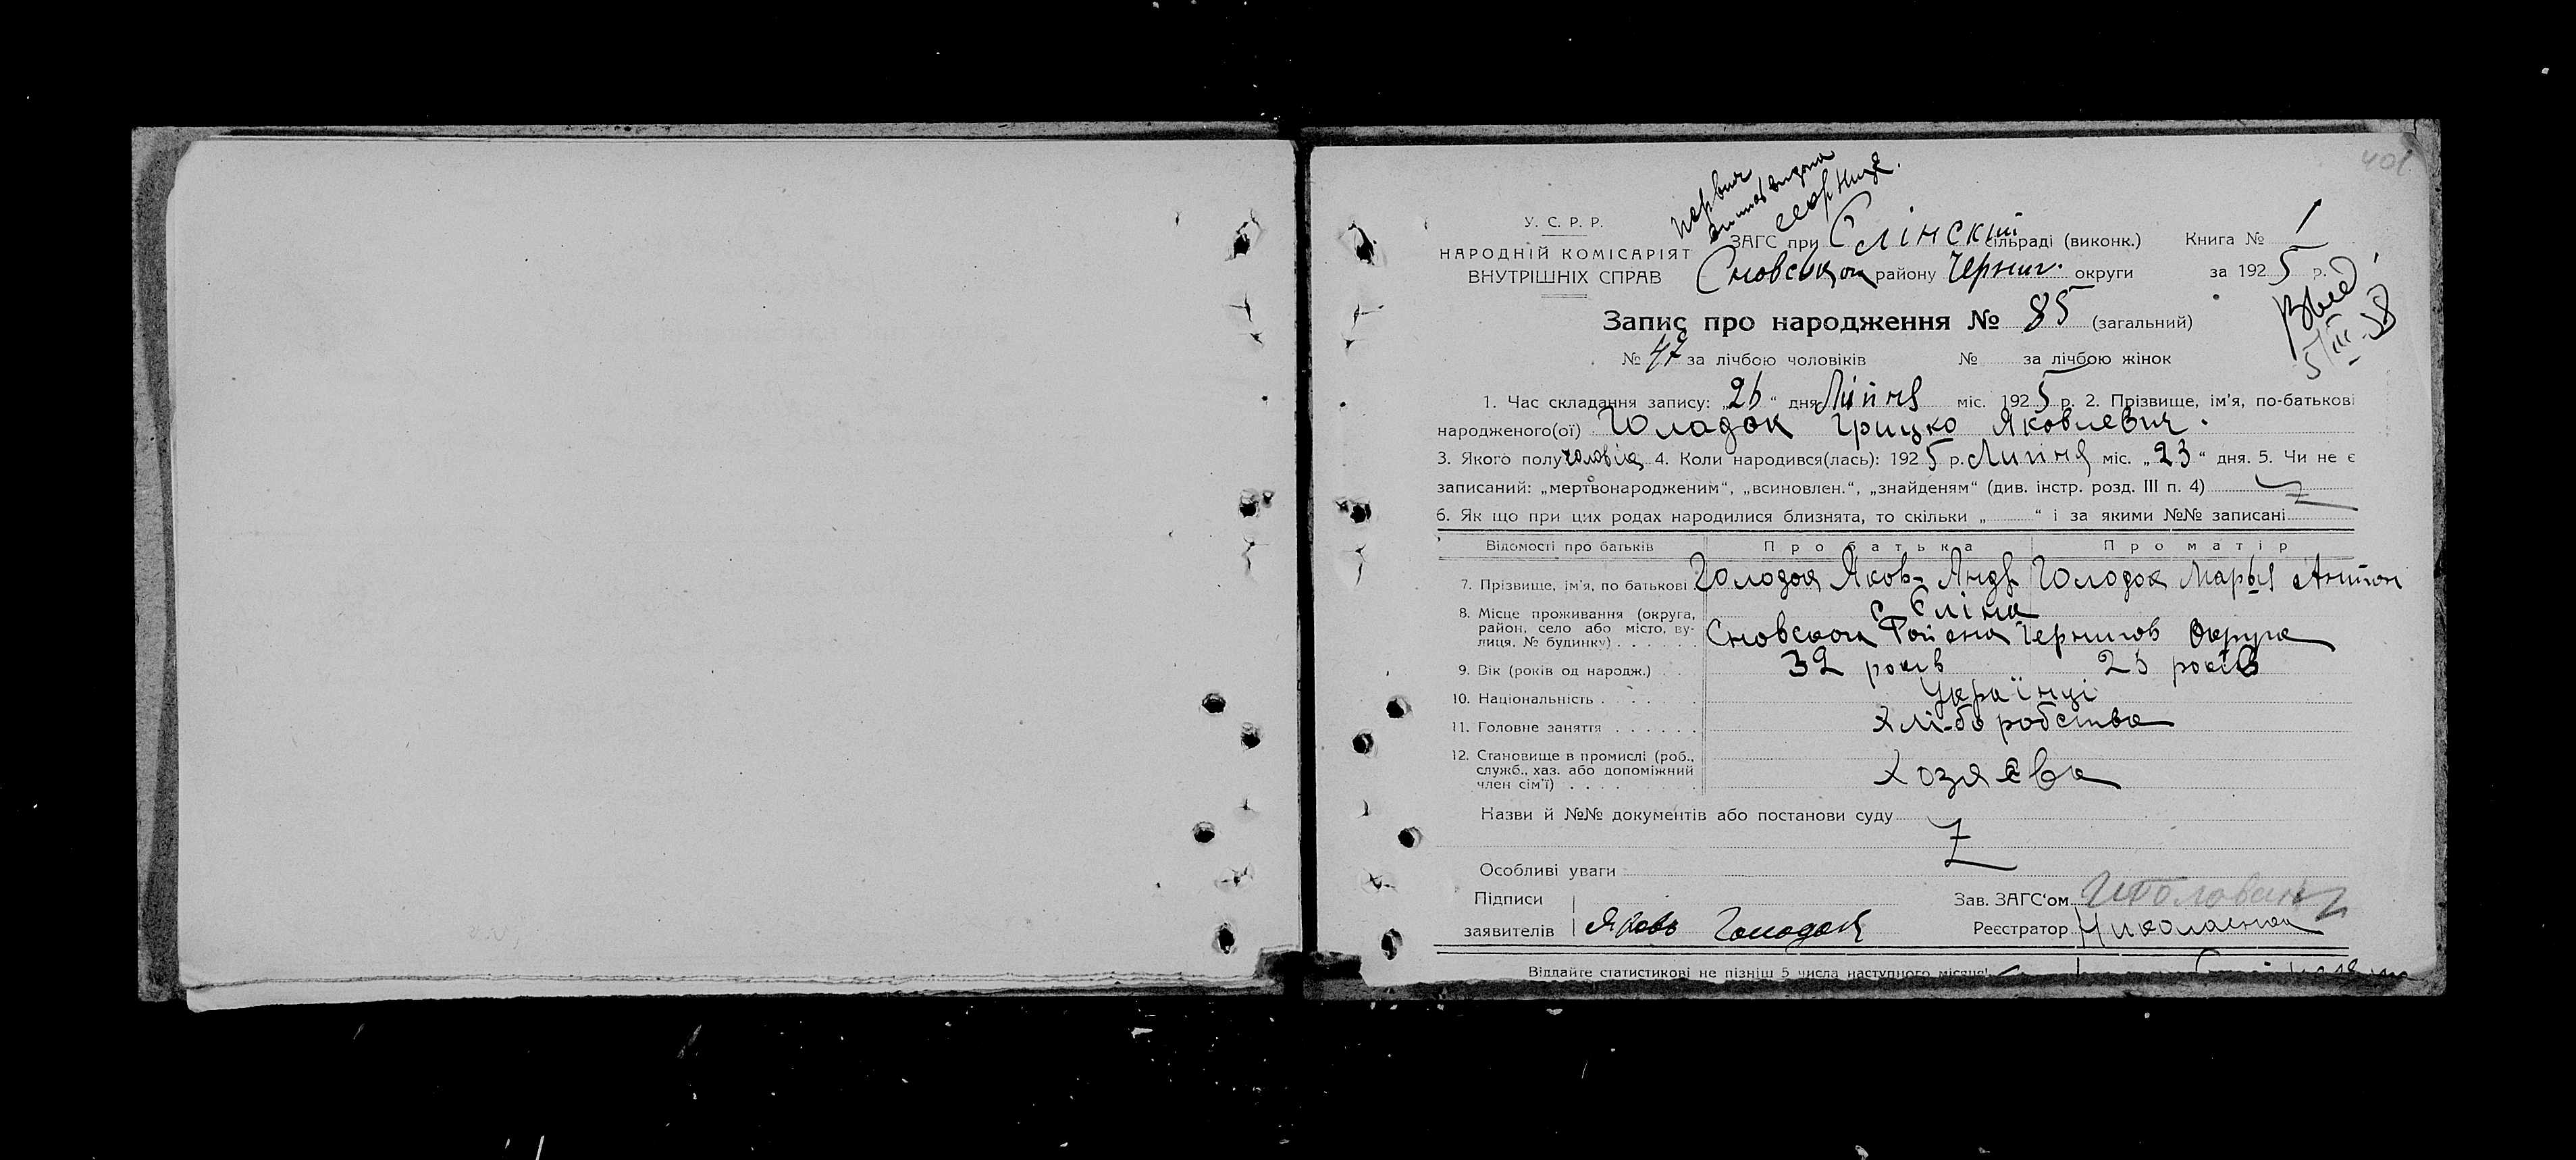 401
У. С. Р. Р.
НАРОДНІЙ КОМІСАРІЯТ
ВНУТРІШНІХ СПРАВ
ЗАГС при Єлінский сільраді (виконк.) Книга № 1
Сновськом району Черниг. округи за 1925 р.
Запис про народження № 85 (загальний)
№ 47 за лічбою чоловіків № за лічбою жінок
5/III 38
1. Час складання запису: „26“ дня Ліпня міс. 1925 р. 2. Прізвище, ім'я, по-батькові
народженого(ої) Голадок Грицко Яковлевич.
3. Якого полу 4. Коли народився(лась): 1925 р. Липня міс. „23“ дня. 5. Чи не є
записаний: „мертвонародженим“, „всиновлен.“, „знайденям“ (див. інстр. розд. III п. 4)
6. Як що при цих родах народилися близнята, то скільки „ “ і за якими №№ записані
Відомості про батьків Про батька Про матір
7. Прізвище, ім'я, по батькові Голодок Яков Андр Голодок Марья Антон
8. Місце проживання (округа, с Єліна
район, село або місто, ву-
лиця, № будинку) Сновского Района Чернигов округа
9. Вік (років од народж.) 32 років 25 років
10. Національність Українці
11. Головне заняття хліборобства
12. Становище в промислі (роб.,
служб., хаз. або допоміжний
член сім'ї) хозяева
Назви й №№ документів або постанови суду
Особливі уваги
Підписи Зав. ЗАГС'ом
заявителів Яковъ Голодок Реєстратор Николаенко
Віддайте статистикові не пізніш 5 числа наступного місяця!